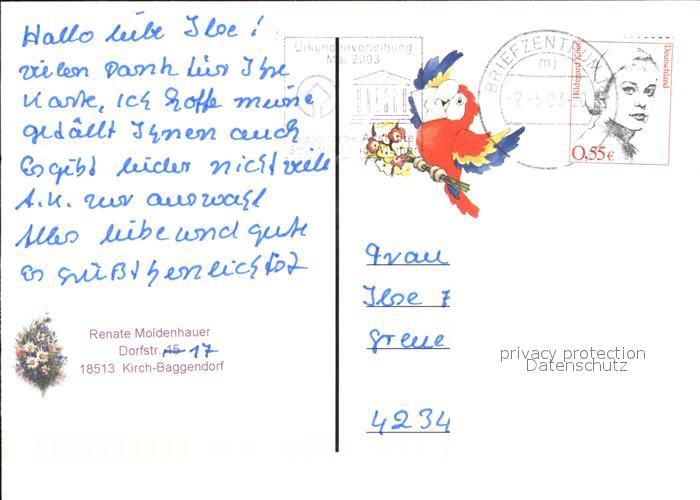 Hallo liebe Ilse!
vielen Dank für Ihre
Karte, ich hoffe meine
gefällt Ihnen auch
Es gibt leider nicht viele
A.K. zur auswahl
Alles liebe und gute
Es grüßt herzlichst
Renate Moldenhauer
Dorfstr. 15 17
18513 Kirch-Baggendorf
Urkundenverleihung
Mai 2003
BRIEFZENTRUM
mj
-2.-5.03-20
Hildegard Knef
Deutschland
0,55€
Frau
Ilse
4234
privacy protection
Datenschutz